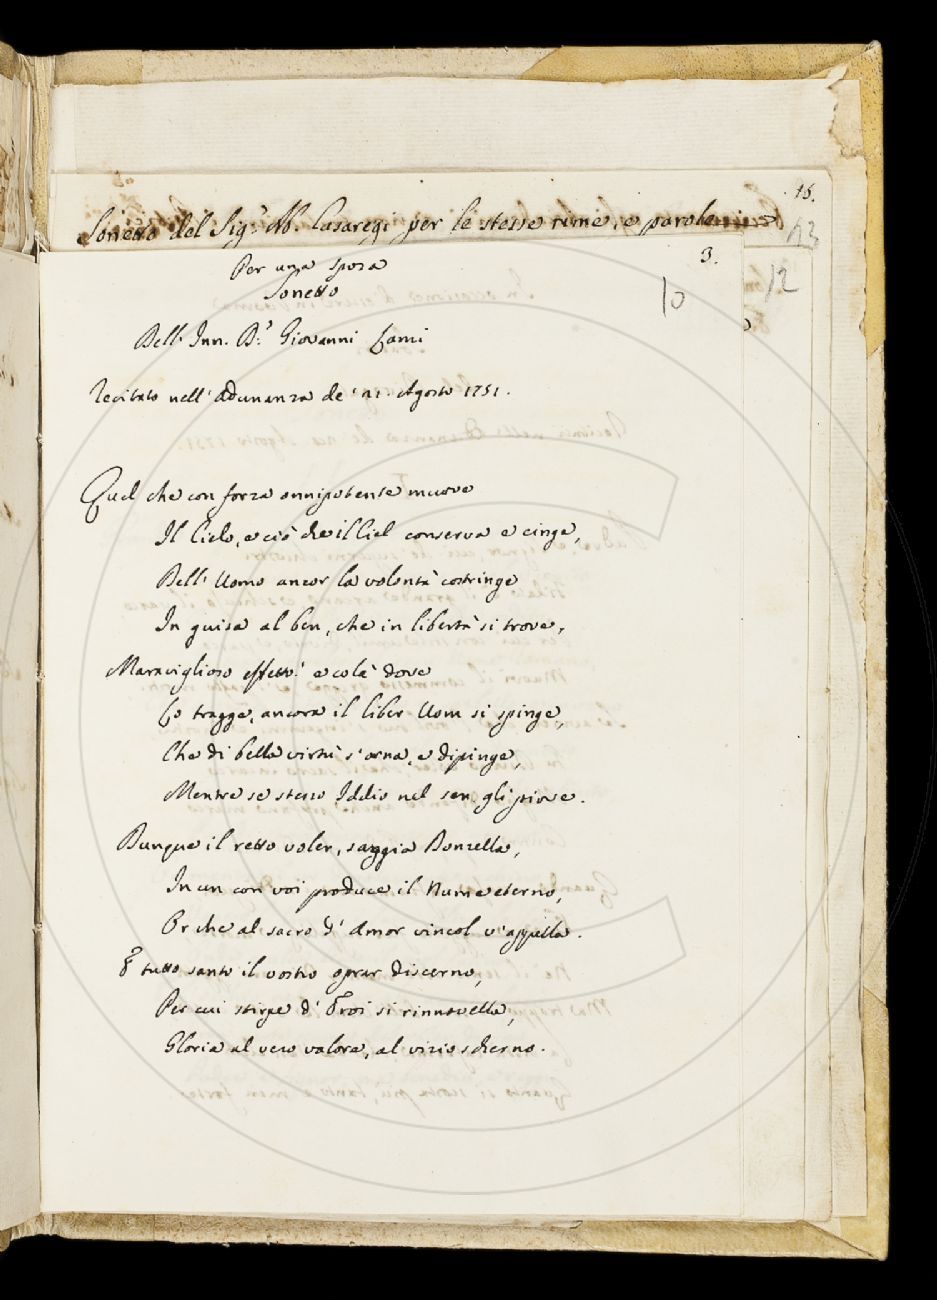 15.
Sonetto del Sig.r Ab. Casaregi per le stesse rime, e parole
13
12
3.
10
Per una sposa
Sonetto
Dell' Inn. D.r Giovanni Lami
Recitato nell' Adunanza de' 21. Agosto 1751.
Quel che con forza onnipotente muove
Il Cielo, e ciò che il Ciel conserva e cinge,
Dell' Uomo ancor la volontà costringe
In guisa al ben, che in libertà si trove,
Maraviglioso effetto! e colà dove
Lo tragge, ancora il liber Uom si spinge,
Che di bella virtù s'orna, e dipinge,
Mentre se stesso Iddio nel sen gli piove.
Dunque il retto voler, saggia Donzella,
In un con voi produce il Nume eterno,
Or che al sacro d' Amor vincol v'appella.
E tutto santo il vostro oprar discerno,
Per cui stirpe d' Eroi si rinnovella,
Gloria al vero valore, al vizio scherno.